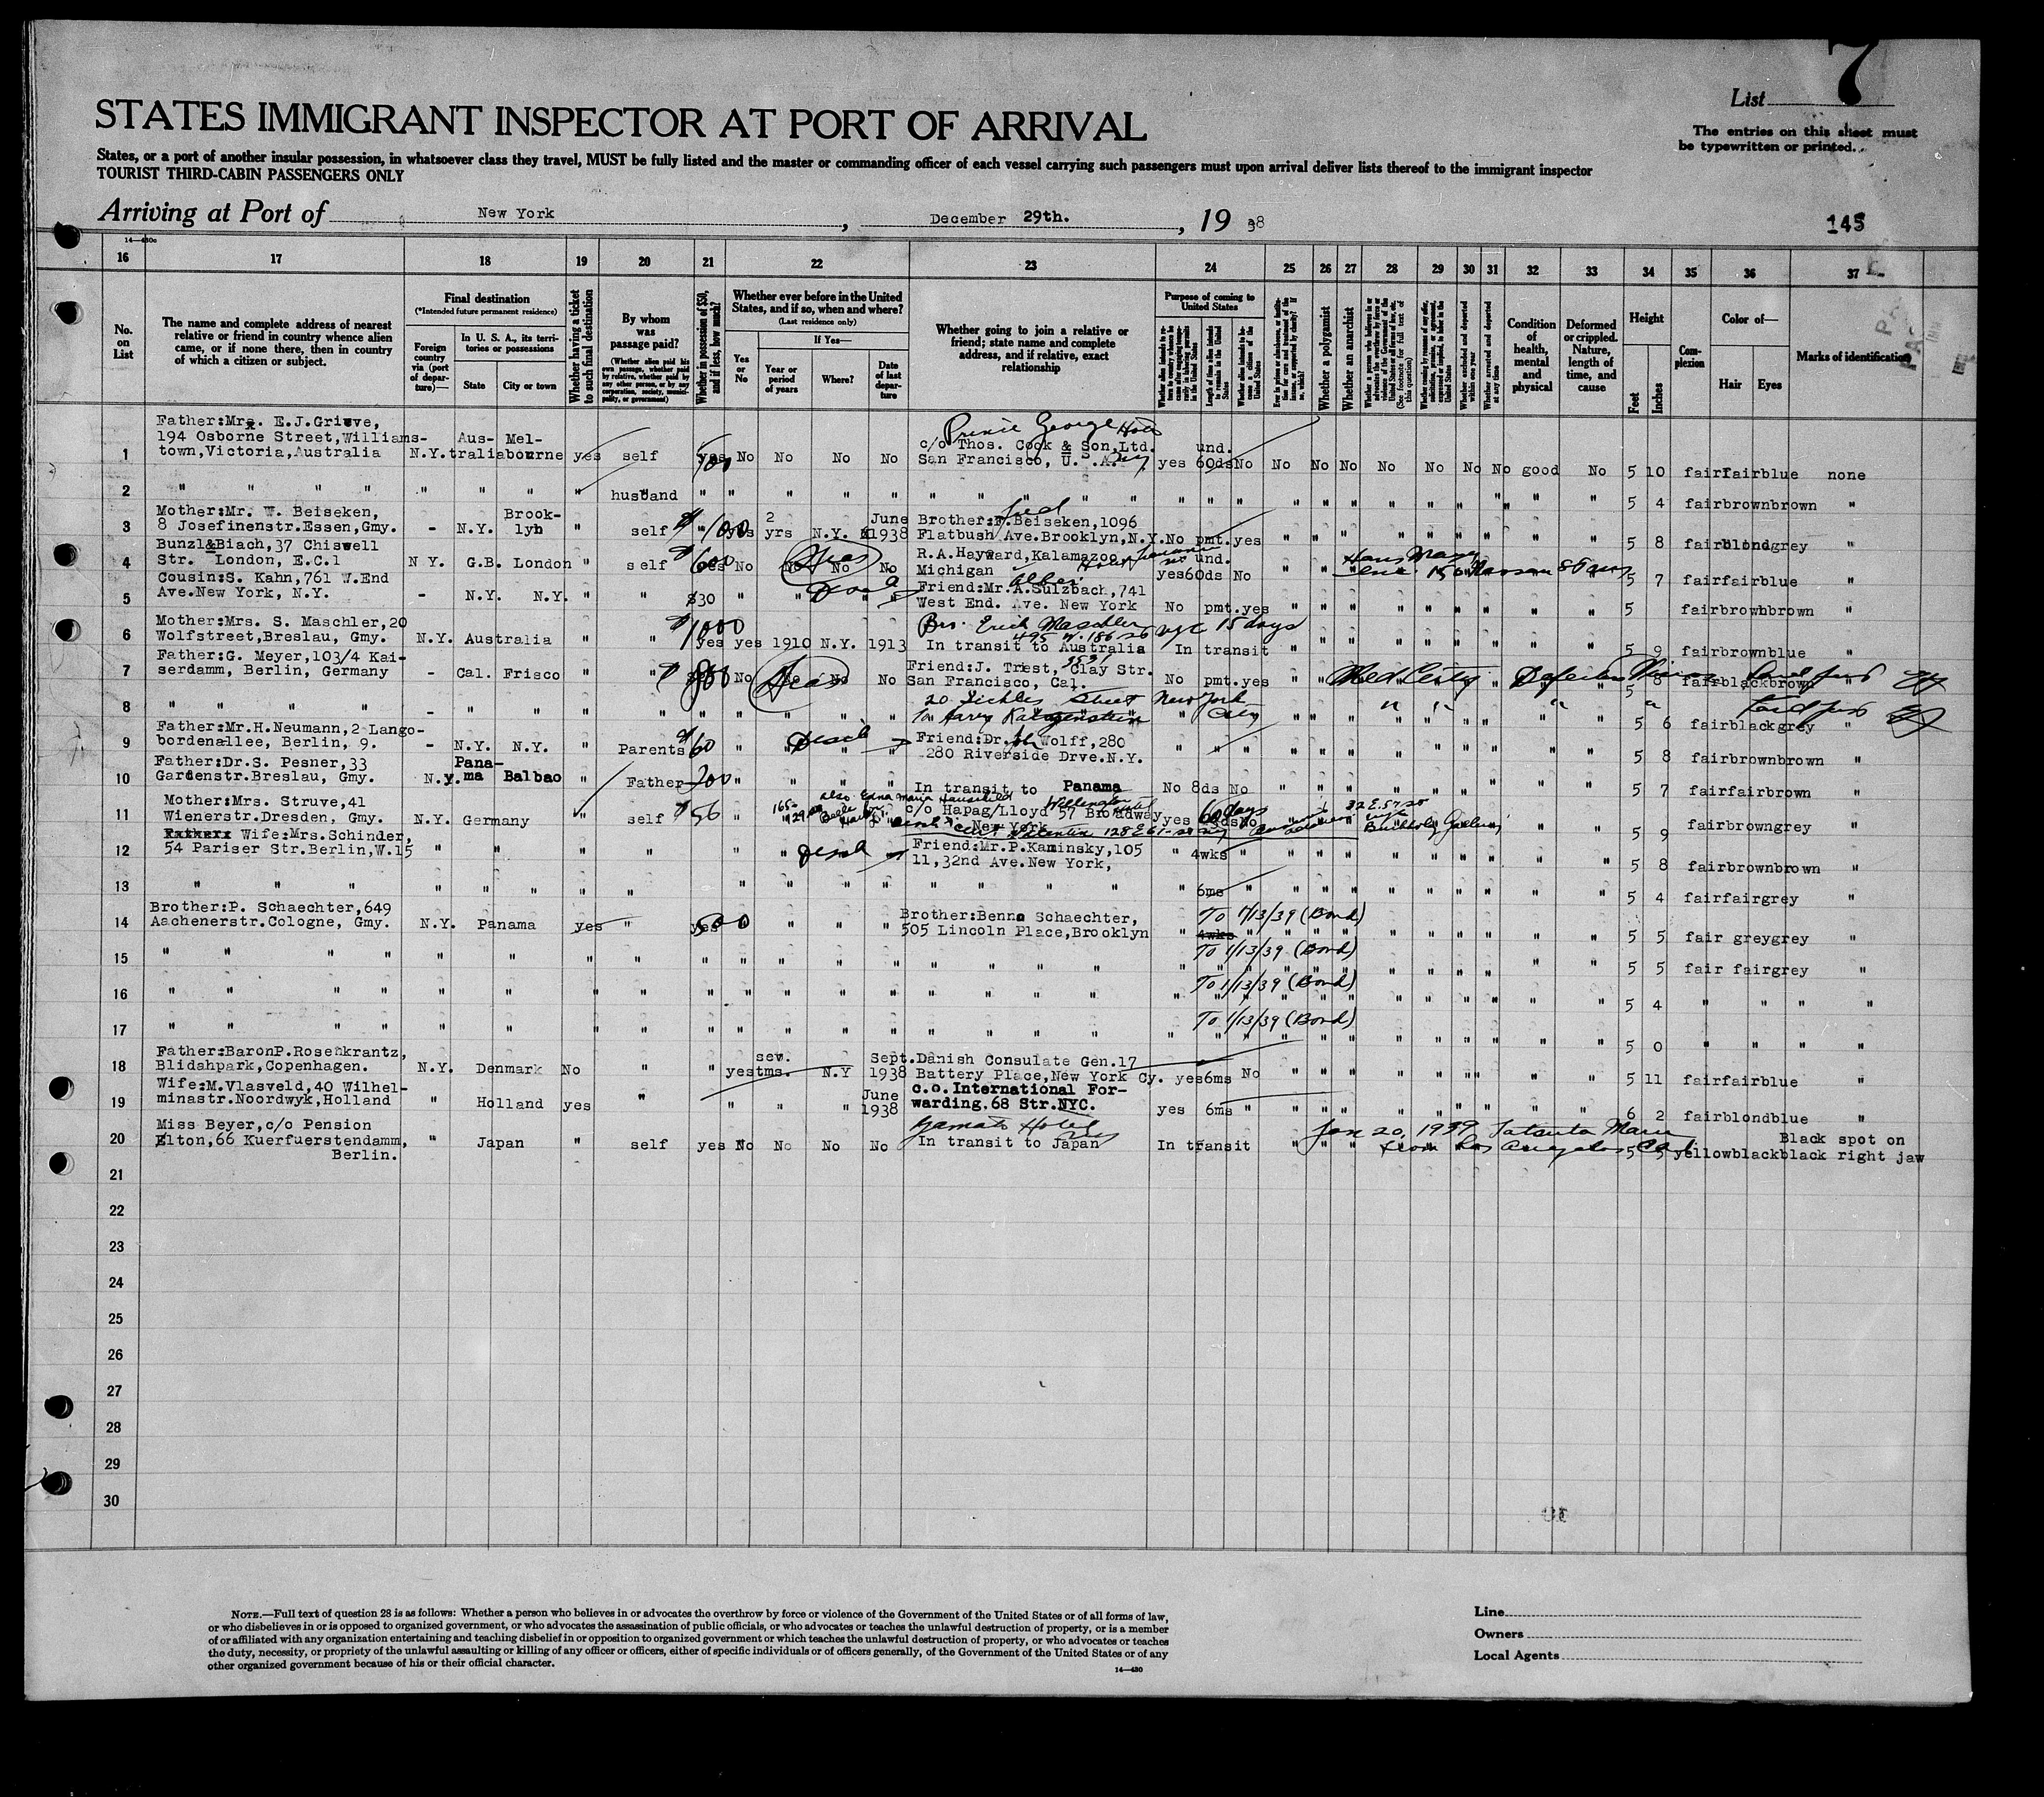 7
List
STATES IMMIGRANT INSPECTOR AT PORT OF ARRIVAL
The entries on this sheet must
be typewritten or printed.
States, or a port of another insular possession, in whatsoever class they travel, MUST be fully listed and the master or commanding officer of each vessel carrying such passengers must upon arrival deliver lists thereof to the immigrant inspector
TOURIST THIRD-CABIN PASSENGERS ONLY
Arriving at Port of New York, December 29th., 19 38
145
14—430c
16 17 18 19 20 21 22 23 24 25 26 27 28 29 30 31 32 33 34 35 36 37
No. on List
The name and complete address of nearest relative or friend in country whence alien came, or if none there, then in country of which a citizen or subject.
Final destination
(*Intended future permanent residence)
Foreign country via (port of departure)—
In U. S. A., its territories or possessions
State
City or town
Whether having a ticket to such final destination
By whom was passage paid?
(Whether alien paid his own passage, whether paid by relative, whether paid by any other person, or by any corporation, society, municipality, or government)
Whether in possession of $50, and if less, how much?
Whether ever before in the United States, and if so, when and where?
(Last residence only)
Yes or No
If Yes—
Year or period of years
Where?
Date of last departure
Whether going to join a relative or friend; state name and complete address, and if relative, exact relationship
Purpose of coming to United States
Length of time alien intends to remain in the United States
Whether a polygamist
Whether an anarchist
(See footnote for full text of this question)
Whether excluded and deported within one year
Whether arrested and deported at any time
Condition of health, mental and physical
Deformed or crippled. Nature, length of time, and cause
Height
Feet
Inches
Complexion
Color of—
Hair
Eyes
Marks of identification
Prince George Hotel
1 Father:Mr. E.J.Grieve,
194 Osborne Street,Williams-
town,Victoria,Australia N.Y. Aus-tralia Mel-bourne yes self yes 100 No No No No c/o Thos. Cook & Son,Ltd. San Francisco, U. .A. yes und. 60ds No No No No No No No No good No 5 10 fair fair blue none
2 " " " " " " " " husband " " " " " " " " " " " " " " " " " " " " " 5 4 fair brown brown "
3 Mother:Mr. W. Beiseken,
8 Josefinenstr.Essen,Gmy. - N.Y. Brook-lyn " self $100 yes 2 yrs N.Y. June 1938 Brother:F.Beiseken,1096 Flatbush Ave.Brooklyn,N.Y. No pmt. yes " " " " " " " " " 5 8 fair blond grey "
4 Bunzl&Biach,37 Chiswell
Str. London, E.C.1 N Y. G.B. London " self $600 yes No No No No R.A.Hayward,Kalamazoo Michigan yes und. 60ds No " " 5 7 fair fair blue "
5 Cousin:S. Kahn,761 W.End
Ave.New York, N.Y. - N.Y. N.Y. " " $30 " " " " Friend:Mr.A.Sulzbach,741 West End. Ave. New York No pmt. yes " " " " " " " " " 5 fair brown brown "
6 Mother:Mrs. S. Maschler,20
Wolfstreet,Breslau, Gmy. N.Y. Australia " " $1000 yes yes 1910 N.Y. 1913 Bro. Erich Maschler 495 W. 186 St nyc 15 days In transit to Australia In transit " " " " " " " " " 5 9 fair brown blue "
7 Father:G. Meyer,103/4 Kai-
serdamm, Berlin, Germany - Cal. Frisco " " $ No No No No Friend:J. Triest, Clay Str. San Francisco, Cal. No pmt. yes " " Med Certg Defective Vision 5 8 fair black brown
8 " " " " - " " " " " " " " " 20 Street New York City " " " " 5 6 fair black grey
9 Father:Mr.H.Neumann,2 Lango-
bordenallee, Berlin, 9. - N.Y. N.Y. " Parents $60 " " " " Friend:Dr. Wolff,280 280 Riverside Drve.N.Y. " " " " " " " " " " " " 5 8 fair brown brown "
10 Father:Dr.S. Pesner,33
Gardenstr.Breslau, Gmy. N.Y. Pana-ma Balbao " Father 200 " " " " In transit to Panama No 8ds No " " " " " " " " " 5 7 fair fair brown "
11 Mother:Mrs. Struve,41
Wienerstr.Dresden, Gmy. N.Y. Germany " self $56 " c/o Hapag/Lloyd 57 Broadway New York yes 60 days No 5 9 fair brown grey "
12 Wife:Mrs.Schinder,
54 Pariser Str.Berlin,W.15 " " " " " " " Friend:Mr.P.Kaminsky,105 11,32nd Ave.New York, " 4wks " " " " " " " " " " 5 8 fair brown brown "
13 " " " " " " " " " " " " " " " " " 6ms " " " " " " " " " " 5 4 fair fair grey "
14 Brother:P. Schaechter,649
Aachenerstr.Cologne, Gmy. N.Y. Panama yes " yes 500 " " " " Brother:Benno Schaechter, 505 Lincoln Place,Brooklyn " To 1/13/39 (Bond) 4wks " " " " " " " " " " 5 5 fair grey grey "
15 " " " " " " " " " " " " " " " " " To 1/13/39 (Bond) " " " " " " 5 5 fair fair grey "
16 " " " " " " " " " " " " " " " " " To 1/13/39 (Bond) " " " " " " 5 4 " " " "
17 " " " " " " " " " " " " " " " " " To 1/13/39 (Bond) " " " " " " 5 0 " " " "
18 Father:BaronP.Rosenkrantz,
Blidahpark,Copenhagen. N.Y. Denmark No " " yes sev. tms. N.Y Sept. 1938 Danish Consulate Gen.17 Battery Place,New York Cy. yes 6ms No " " " " " " " " " 5 11 fair fair blue "
19 Wife:M.Vlasveld,40 Wilhel-
minastr.Noordwyk,Holland " Holland yes " " " " June 1938 c.o. International For-warding.68 Str.NYC. yes 6ms " " " " " " " " " " 6 2 fair blond blue "
20 Miss Beyer,c/o Pension
Elton,66 Kuerfuerstendamm,
Berlin. " Japan " self yes No No No No Yamato Hotel In transit to Japan In transit Jan 20, 1939 Tatsuta Maru from Los Angeles Cal 5 5 yellow black black Black spot on right jaw
21
22
23
24
25
26
27
28
29
30
NOTE.—Full text of question 28 is as follows: Whether a person who believes in or advocates the overthrow by force or violence of the Government of the United States or of all forms of law,
or who disbelieves in or is opposed to organized government, or who advocates the assassination of public officials, or who advocates or teaches the unlawful destruction of property, or is a member
of or affiliated with any organization entertaining and teaching disbelief in or opposition to organized government or which teaches the unlawful destruction of property, or who advocates or teaches
the duty, necessity, or propriety of the unlawful assaulting or killing of any officer or officers, either of specific individuals or of officers generally, of the Government of the United States or of any
other organized government because of his or their official character.
14—430
Line
Owners
Local Agents